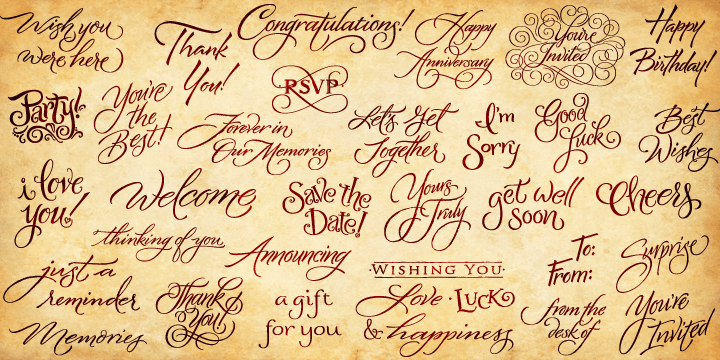 Wish you
were here
Thank
You!
Congratulations!
Happy
Anniversary
You're
Invited
Happy
Birthday!
Party!
You're
the
Best!
RSVP
Forever in
Our Memories
Let's Get
Together
I'm
Sorry
Good
Luck
Best
Wishes
i love
you!
Welcome
Save the
Date!
Yours
Truly
get well
soon
Cheers
thinking of you
Announcing
To:
From:
Surprise
just a
reminder
Thank
You!
a gift
for you
WISHING YOU
Love · Luck
& happiness
from the
desk of
You're
Invited
Memories